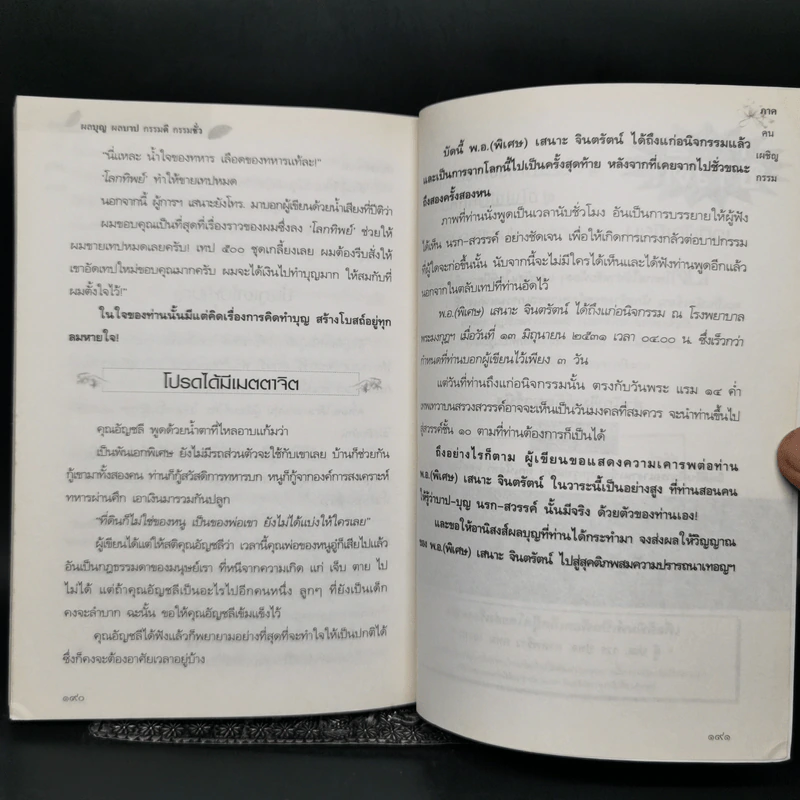 ผลบุญ ผลบาป กรรมดี กรรมชั่ว
“นี่แหละ น้ำใจของทหาร เลือดของทหารแท้ละ!”
‘โลกทิพย์’ ทำให้ขายเทปหมด
นอกจากนี้ ผู้การฯ เสนาะยังโทร. มาบอกผู้เขียนด้วยน้ำเสียงที่ปีติว่า
ผมขอบคุณเป็นที่สุดที่เรื่องราวของผมซึ่งลง ‘โลกทิพย์’ ช่วยให้
ผมขายเทปหมดเลยครับ! เทป ๕๐๐ ชุดเกลี้ยงเลย ผมต้องรีบสั่งให้
เขาอัดเทปใหม่ขอบคุณมากครับ ผมจะได้เงินไปทำบุญมาก ให้สมกับที่
ผมตั้งใจไว้!”
ในใจของท่านนั้นมีแต่คิดเรื่องการคิดทำบุญ สร้างโบสถ์อยู่ทุก
ลมหายใจ!
โปรดได้มีเมตตาจิต
คุณอัญชลี พูดด้วยน้ำตาที่ไหลอาบแก้มว่า
เป็นพันเอกพิเศษ ยังไม่มีรถส่วนตัวจะใช้กับเขาเลย บ้านก็ช่วยกัน
กู้เขามาทั้งสองคน ท่านก็กู้สวัสดิการทหารบก หนูก็กู้จากองค์การสงเคราะห์
ทหารผ่านศึก เอาเงินมารวมกันปลูก
“ที่ดินก็ไม่ใช่ของหนู เป็นของพ่อเขา ยังไม่ได้แบ่งให้ใครเลย”
ผู้เขียนได้แต่ให้สติคุณอัญชลีว่า เวลานี้คุณพ่อของหนูอู๋ก็เสียไปแล้ว
อันเป็นกฎธรรมดาของมนุษย์เรา ที่หนีจากความเกิด แก่ เจ็บ ตาย ไป
ไม่ได้ แต่ถ้าคุณอัญชลีเป็นอะไรไปอีกคนหนึ่ง ลูกๆ ที่ยังเป็นเด็ก
คงจะลำบาก ฉะนั้น ขอให้คุณอัญชลีเข้มแข็งไว้
คุณอัญชลีได้ฟังแล้วก็พยายามอย่างที่สุดที่จะทำใจให้เป็นปกติได้
ซึ่งก็คงจะต้องอาศัยเวลาอยู่บ้าง
๑๙๐
ภาค
คน
เผชิญ
กรรม
บัดนี้ พ.อ.(พิเศษ) เสนาะ จินตรัตน์ ได้ถึงแก่อนิจกรรมแล้ว
และเป็นการจากโลกนี้ไปเป็นครั้งสุดท้าย หลังจากที่เคยจากไปชั่วขณะ
ถึงสองครั้งสองหน
ภาพที่ท่านนั่งพูดเป็นเวลานับชั่วโมง อันเป็นการบรรยายให้ผู้ฟัง
ได้เห็น นรก-สวรรค์ อย่างชัดเจน เพื่อให้เกิดการเกรงกลัวต่อบาปกรรม
ที่ผู้ใดจะก่อขึ้นนั้น นับจากนี้จะไม่มีใครได้เห็นและได้ฟังท่านพูดอีกแล้ว
นอกจากในตลับเทปที่ท่านอัดไว้
พ.อ.(พิเศษ) เสนาะ จินตรัตน์ ได้ถึงแก่อนิจกรรม ณ โรงพยาบาล
พระมงกุฎฯ เมื่อวันที่ ๑๓ มิถุนายน ๒๕๓๑ เวลา ๐๔.๐๐ น. ซึ่งเร็วกว่า
กำหนดที่ท่านบอกผู้เขียนไว้เพียง ๓ วัน
แต่วันที่ท่านถึงแก่อนิจกรรมนั้น ตรงกับวันพระ แรม ๑๔ ค่ำ
ภาพเทวาบนสรวงสวรรค์อาจจะเห็นเป็นวันมงคลที่สมควร จะนำท่านขึ้นไป
สู่สวรรค์ชั้น ๑๐ ตามที่ท่านต้องการก็เป็นได้
ถึงอย่างไรก็ตาม ผู้เขียนขอแสดงความเคารพต่อท่าน
พ.อ.(พิเศษ) เสนาะ จินตรัตน์ ในวาระนี้เป็นอย่างสูง ที่ท่านสอนคน
ให้รู้ว่าบาป-บุญ นรก-สวรรค์ นั้นมีจริง ด้วยตัวของท่านเอง!
และขอให้อานิสงส์ผลบุญที่ท่านได้กระทำมา จงส่งผลให้วิญญาณ
ของ พ.อ.(พิเศษ) เสนาะ จินตรัตน์ ไปสู่สุคติภพสมความปรารถนาเทอญฯ
๑๙๑